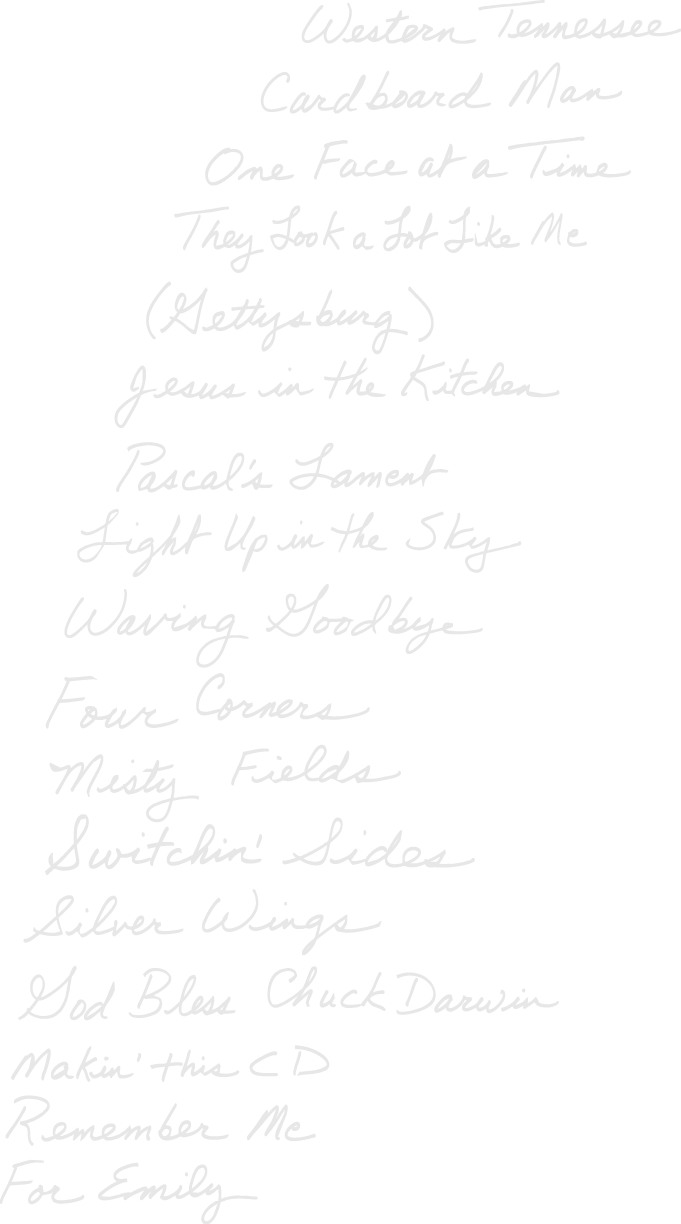 Western Tennessee
Cardboard Man
One Face at a Time
They Look a Lot Like Me
(Gettysburg)
Jesus in the Kitchen
Pascal's Lament
Light Up in the Sky
Waving Goodbye
Four Corners
Misty Fields
Switchin' Sides
Silver Wings
God Bless Chuck Darwin
Makin' this CD
Remember Me
For Emily